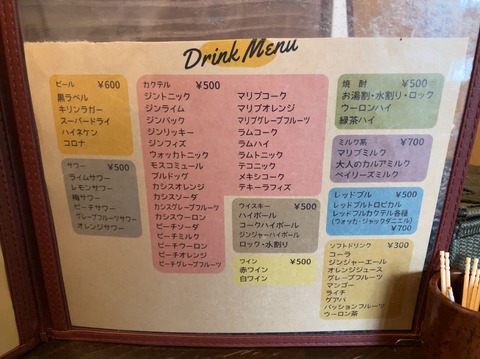 Drink Menu
ビール ¥600
黒ラベル
キリンラガー
スーパードライ
ハイネケン
コロナ
サワー ¥500
ライムサワー
レモンサワー
梅サワー
ピーチサワー
グレープフルーツサワー
オレンジサワー
カクテル ¥500
ジントニック
ジンライム
ジンバック
ジンリッキー
ジンフィズ
ウォッカトニック
モスコミュール
ブルドッグ
カシスオレンジ
カシスソーダ
カシスグレープフルーツ
カシスウーロン
ピーチソーダ
ピーチミルク
ピーチウーロン
ピーチオレンジ
ピーチグレープフルーツ
マリブコーク
マリブオレンジ
マリブグレープフルーツ
ラムコーク
ラムハイ
ラムトニック
テコニック
メキシコーク
テキーラフィズ
ウイスキー ¥500
ハイボール
コークハイボール
ジンジャーハイボール
ロック・水割り
ワイン ¥500
赤ワイン
白ワイン
焼酎 ¥500
お湯割・水割り・ロック
ウーロンハイ
緑茶ハイ
ミルク系 ¥700
マリブミルク
大人のカルアミルク
ベイリーズミルク
レッドブル ¥500
レッドブルトロピカル
レッドブルカクテル各種
(ウォッカ・ジャックダニエル)
¥700
ソフトドリンク ¥300
コーラ
ジンジャーエール
オレンジジュース
グレープフルーツ
マンゴー
ライチ
グアバ
パッションフルーツ
ウーロン茶